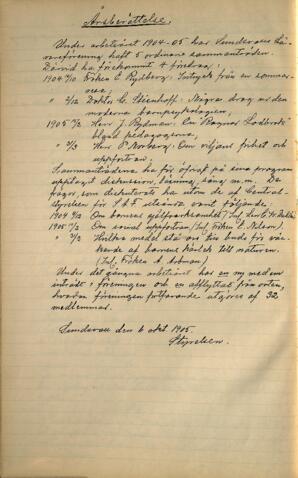 Årsberättelse.
Under arbetsåret 1904-05 har Sundsvalls Lä-
rareförening haft 5 ordinarie sammanträden.
Därvid ha förekommit 4 föredrag:
1904 4/10 Fröken E. Rydberg: Intryck från en sommar-
resa;
" 2/12 Doktor G. Stenhoff: Några drag ur den
moderna barnpsykologien,
1905 7/2 Herr J. Rydman: Om Ragnar
pedagogerna,
" 3/3 Herr P. Norberg: Om viljans frihet och
uppfostran;
Sammanträdena ha för öfrigt på sina program
upptagit diskussion, läsning, sång m.m. De
frågor, som diskuterats ha utom de af Central-
styrelsen för S A F utsända varit följande:
1904 9/2 Om barnens självverksamhet (Inl.
1905 7/2 Om social uppfostran (Inl. Fröken E. Nelson).
" 3/2 Hvilka medel stå oss till buds för väc-
kande af barnens kärlek till naturen.
(Inl. Fröken A. Åman)
Under det gångna arbetsåret har en ny medlem
inträdt i föreningen och en afflyttat från orten,
hvadan föreningen fortfarande utgöres af 32
medlemmar.
Sundsvall den 6 okt 1905.
Styrelsen.